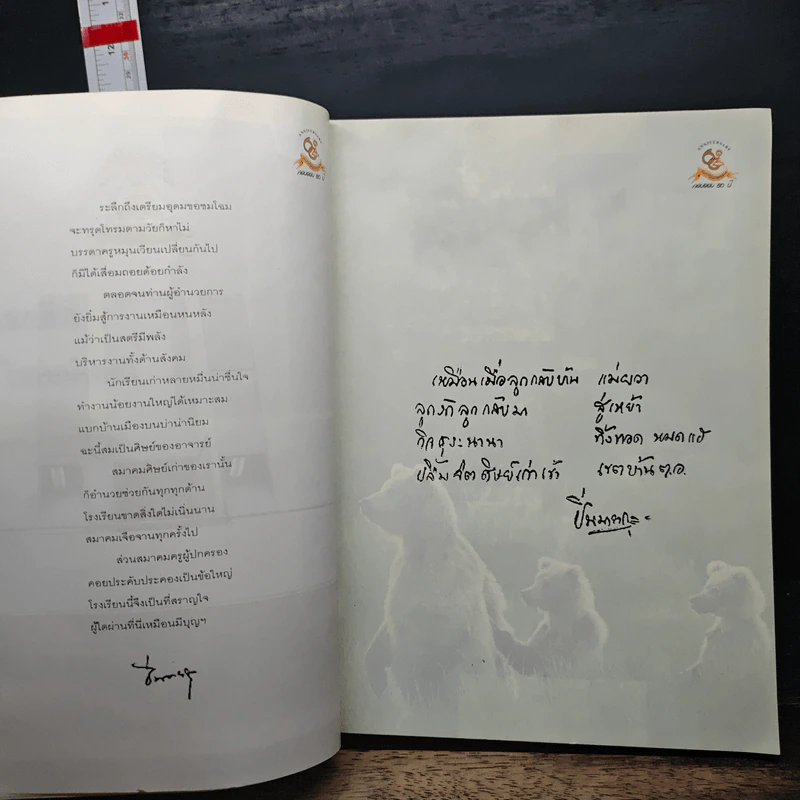 ANNIVERSARY
ระลึกถึงเตรียมอุดมขอชมโฉม
จะทรุดโทรมตามวัยก็หาไม่
บรรดาครูหมุนเวียนเปลี่ยนกันไป
ก็มิได้เสื่อมถอยด้อยกำลัง
ตลอดจนท่านผู้อำนวยการ
ยังยิ้มสู้การงานเหมือนหนหลัง
แม้ว่าเป็นสตรีมีพลัง
บริหารงานทั้งด้านสังคม
นักเรียนเก่าหลายหมื่นน่าชื่นใจ
ทำงานน้อยงานใหญ่ได้เหมาะสม
แบกบ้านเมืองบนบ่าน่านิยม
ฉะนี้สมเป็นศิษย์ของอาจารย์
สมาคมศิษย์เก่าของเรานั้น
ก็อำนวยช่วยกันทุกทุกด้าน
โรงเรียนขาดสิ่งใดไม่เนิ่นนาน
สมาคมเจือจานทุกครั้งไป
ส่วนสมาคมครูผู้ปกครอง
คอยประคับประคองเป็นข้อใหญ่
โรงเรียนนี้จึงเป็นที่สราญใจ
ผู้ใดผ่านที่นี่เหมือนมีบุญฯ
ANNIVERSARY
เหมือนเมื่อลูกกลับหัน แม่ผวา
ลูกรักลูกกลับมา สู่เหย้า
กิจธุระนานา ทิ้งทอด หมดแฮ
ปลื้มจิตศิษย์เก่าเข้า เขตบ้าน ต.อ.